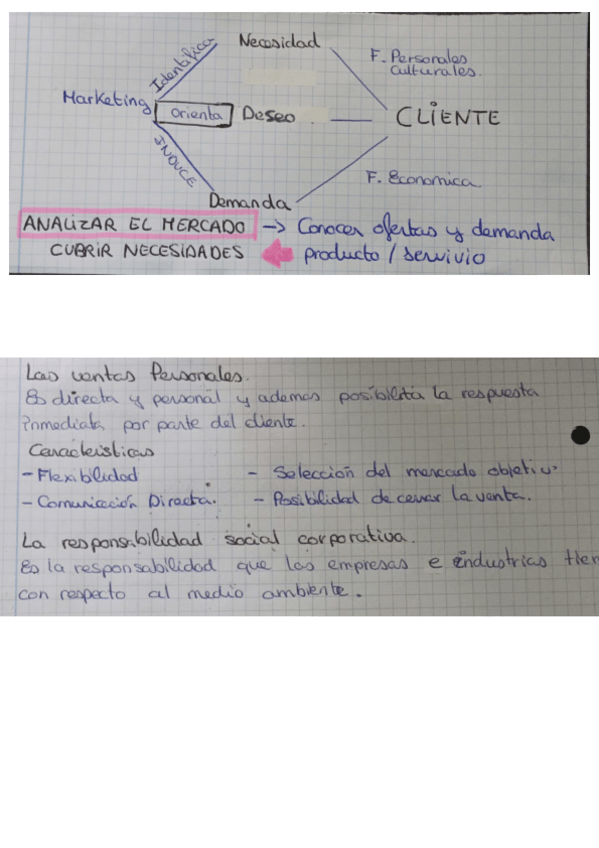 Necesidad
F. Personales
Culturales.
Identifica
Marketing
orienta
Deseo
CLIENTE
INDUCE
F. Economica
Demanda
ANALIZAR EL MERCADO -> Conocer ofertas y demanda
CUBRIR NECESIDADES producto / servivio
Las ventas Personales.
Es directa y personal y ademas posibilita la respuesta
inmediata por parte del cliente.
Caracteisticas
- Flexibilidad
- Selección del mercado objetivo.
- Comunicación Directa.
- Posibilidad de cerrar la venta.
La responsabilidad social corporativa.
Es la responsabilidad que las empresas e industrias tien
con respecto al medio ambiente.